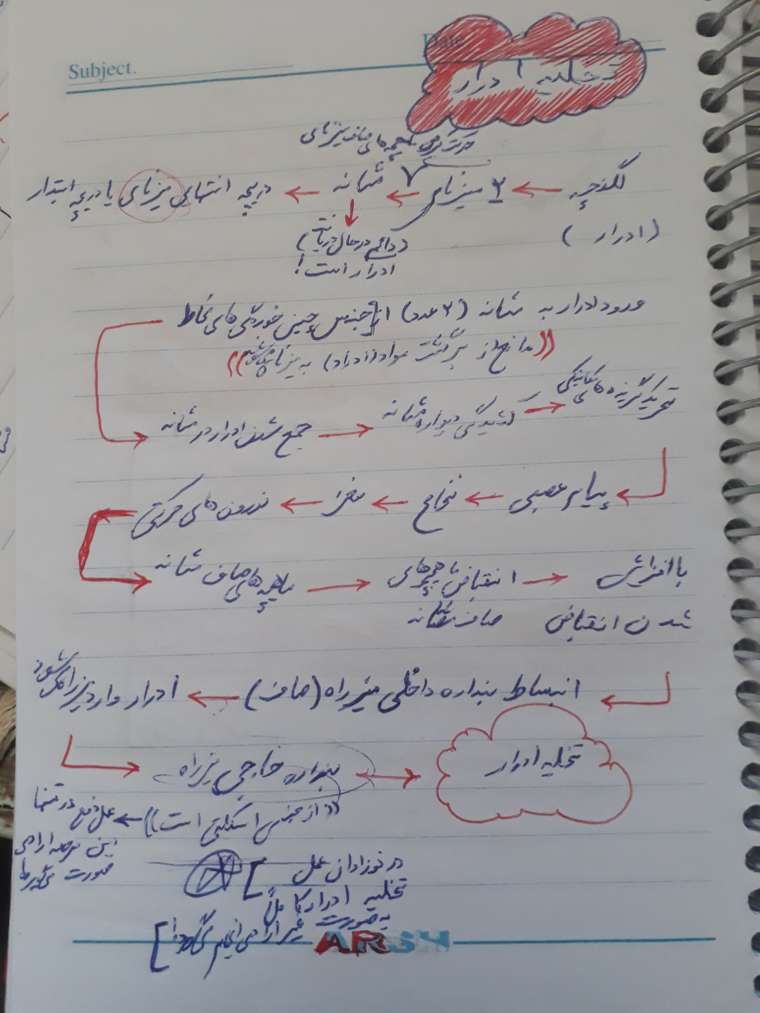 Subject.
Date
تخلیه ادرار
حرکت کرمی ماهیچه های صاف میزنای
لگنچه ← ۲ میزنای ← مثانه ← دریچه انتهای میزنای یا دریچه ابتدای
(ادرار)
(دائم در حال دریافت
ادرار است!)
ورود ادرار به مثانه (۲ عدد) از [جنس چین خوردگی های مخاط
((مانع از برگشت مواد (ادرار) به میزنای می شود))
جمع شدن ادرار در مثانه → کشیدگی دیواره مثانه → تحریک گیرنده های مکانیکی
پیام عصبی ← نخاع ← مغز ← نورون های حرکتی
ماهیچه های صاف مثانه → انقباض ماهیچه های صاف مثانه → با افزایش
شدن انقباض
انبساط بنداره داخلی میزراه (صاف) ← ادرار وارد میزراه می شود
بنداره خارجی میزراه → تخلیه ادرار
((از جنس اسکلتی است)) ← عمل دفع در تنها
این مرحله ارادی
صورت می گیرد
در نوزادان عمل]
تخلیه ادرار کاملاً
به صورت غیر ارادی انجام می گردد!]